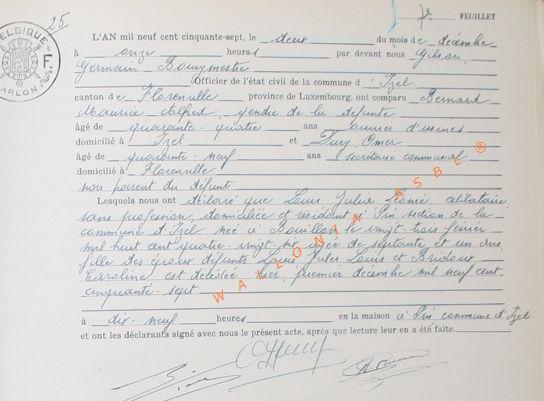 25
7e FEUILLET
BELGIQUE
F.
ARLON
L'AN mil neuf cent cinquante-sept, le deux du mois de décembre
à onze heures par devant nous Gilson,
Germain Bourgmestre
Officier de l'état civil de la commune d'Izel
canton de Florenville province de Luxembourg, ont comparu Bernard
Maurice Alphert, gendre de la défunte
âgé de quarante-quatre ans ouvrier d'usines
domicilié à Izel et Omer
âgé de quarante-neuf ans secrétaire communal
domicilié à Florenville
non parent du défunt
Lesquels nous ont déclaré que Louis, Julie Léonie célibataire
sans profession, domiciliée et résidant à Pin section de la
commune d'Izel née à Bouillon le vingt-trois février
mil huit cent quatre-vingt âgée de septante et un ans
fille des époux défunts Louis Jules Louis et Bridoux
Caroline est décédée hier, premier décembre mil neuf cent
cinquante-sept
à dix-neuf heures en la maison à Pin commune d'Izel
et ont les déclarants signé avec nous le présent acte, après que lecture leur en a été faite.
WALLONIA ASBL ®